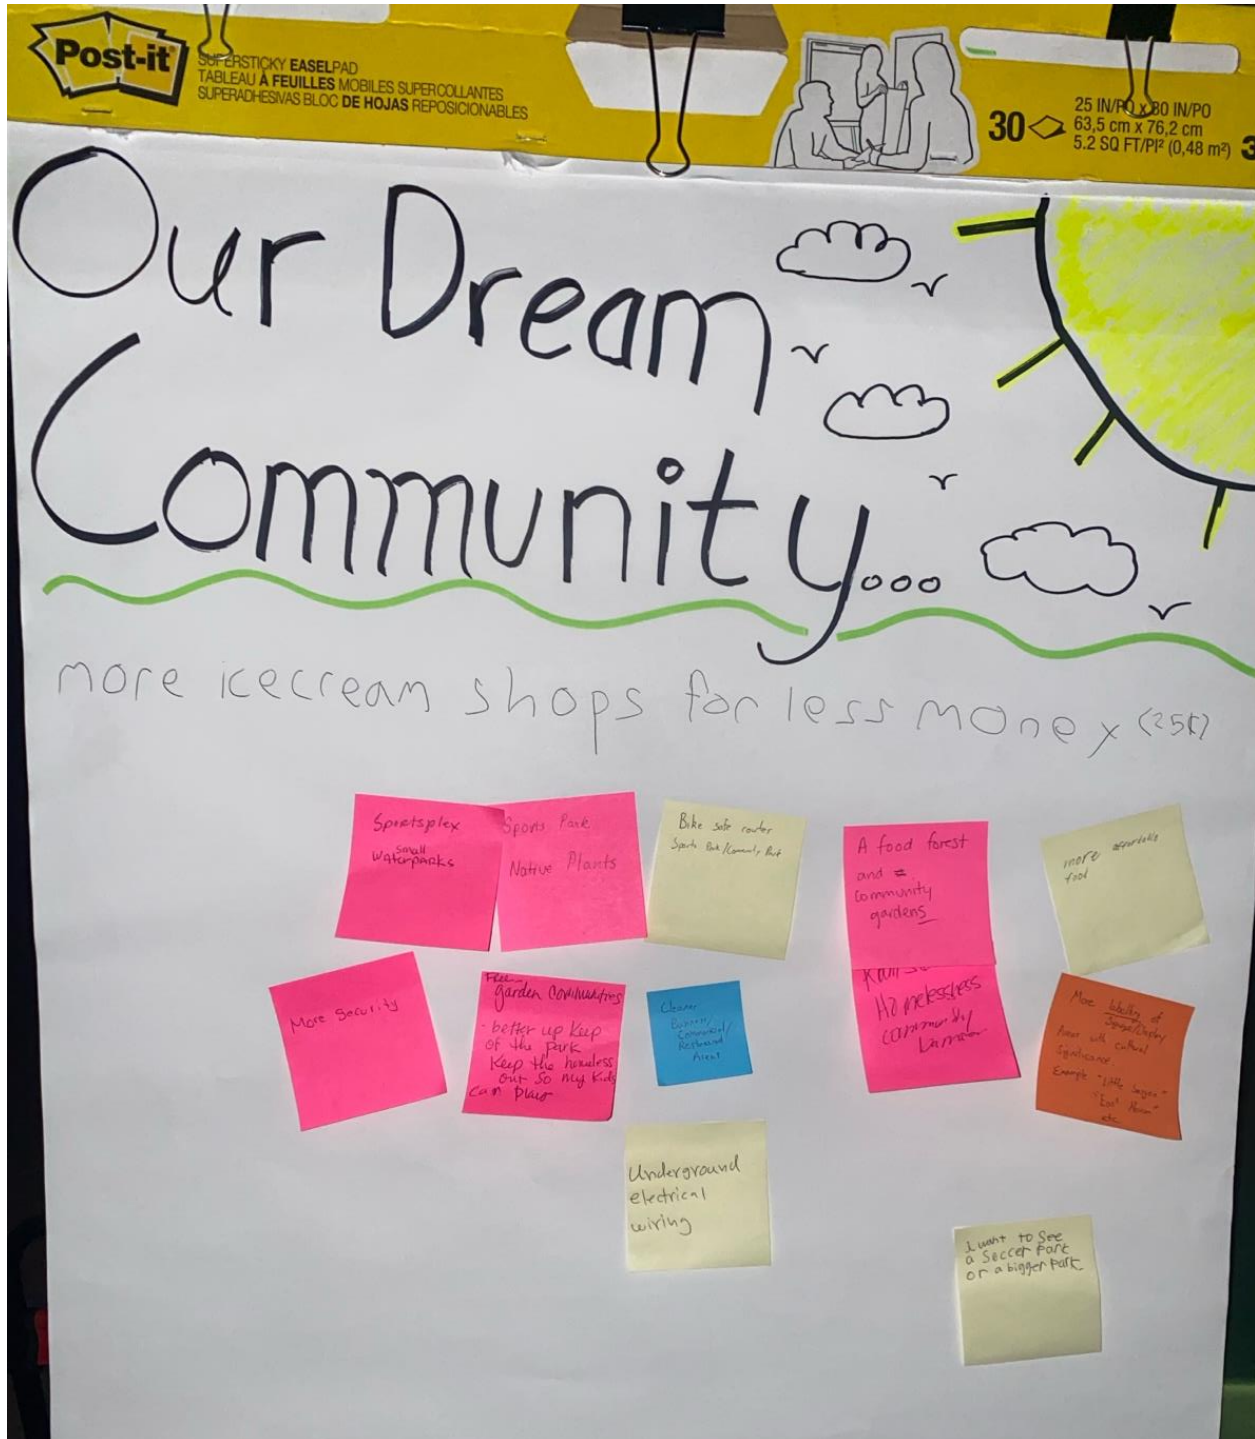 Post-it
SUPERSTICKY EASELPAD
TABLEAU À FEUILLES MOBILES SUPERCOLLANTES
SUPERADHESIVAS BLOC DE HOJAS REPOSICIONABLES
30
25 IN/PO x 30 IN/PO
63,5 cm x 76,2 cm
5.2 SQ FT/PI² (0,48 m²)
Our Dream
Community...
more icecream shops for less money
Sportsplex
small
Waterparks
Sports Park
Native Plants
Bike safe router
Sports Park/Community Park
A food forest
and
community
gardens
more affordable
food
More Security
Free
garden communities
- better up keep
of the park
Keep the homeless
out so my kids
can play
Cleaner
Homelessness
More labelling of
Signage/Display
Areas with cultural
Significance.
Example "Little Saigon"
etc
Underground
electrical
wiring
I want to see
a Soccer Park
or a bigger Park